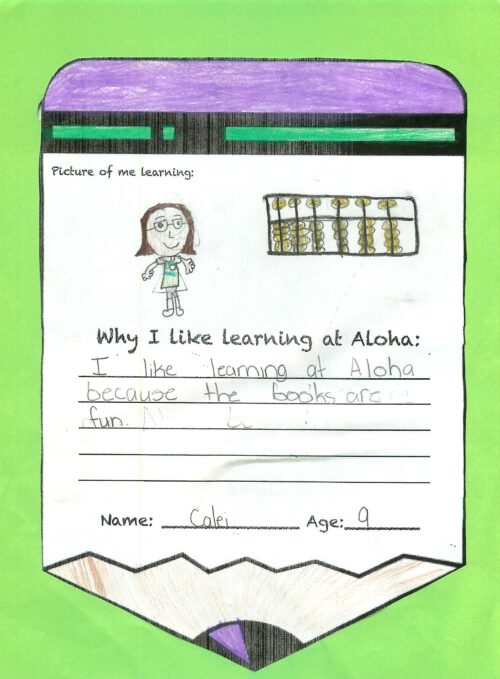 Picture of me learning:
Why I like learning at Aloha:
I like learning at Aloha
because the books are
fun.
Name: Calei Age: 9